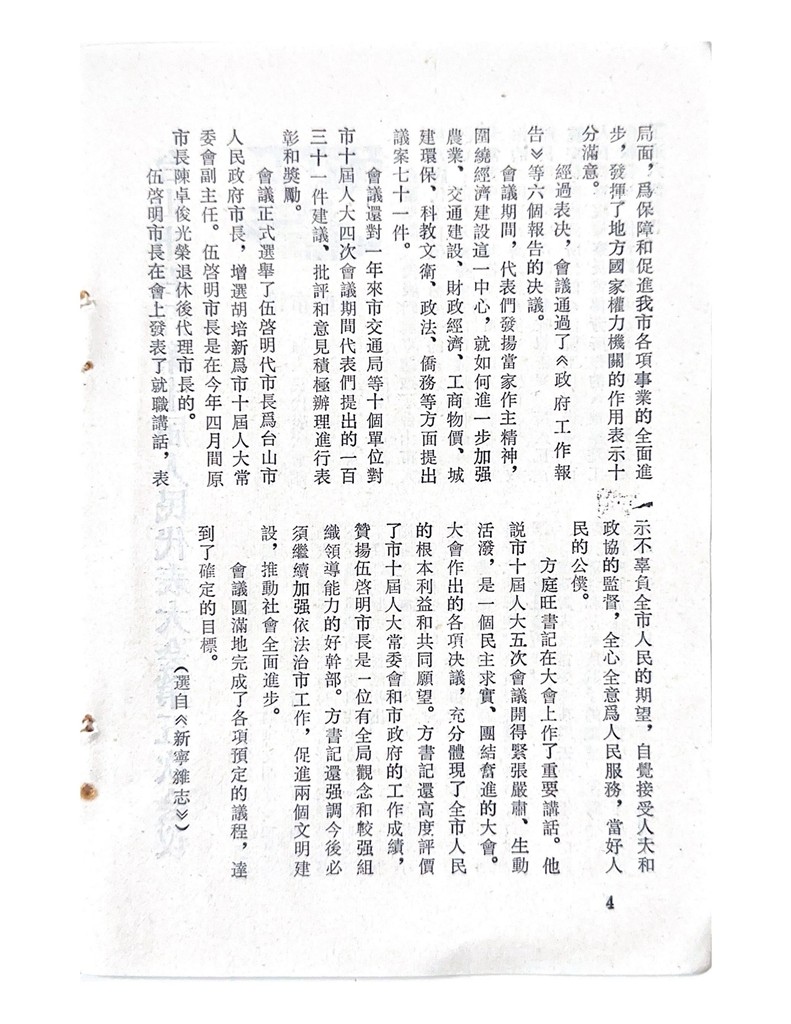 局面，爲保障和促進我市各項事業的全面進
步，發揮了地方國家權力機關的作用表示十
分滿意。
經過表决，會議通過了《政府工作報
告》等六個報告的决議。
會議期間，代表們發揚當家作主精神，
圍繞經濟建設這一中心，就如何進一步加强
農業、交通建設、財政經濟、工商物價、城
建環保、科教文衛、政法、僑務等方面提出
議案七十一件。
會議還對一年來市交通局等十個單位對
市十屆人大四次會議期間代表們提出的一百
三十一件建議、批評和意見積極辦理進行表
彰和獎勵。
會議正式選舉了伍啓明代市長爲台山市
人民政府市長，增選胡培新爲市十屆人大常
委會副主任。伍啓明市長是在今年四月間原
市長陳卓俊光榮退休後代理市長的。
伍啓明市長在會上發表了就職講話，表
示不辜負全市人民的期望，自覺接受人大和
政協的監督，全心全意爲人民服務，當好人
民的公僕。
方庭旺書記在大會上作了重要講話。他
説市十屆人大五次會議開得緊張嚴肅、生動
活潑，是一個民主求實、團結奮進的大會。
大會作出的各項决議，充分體現了全市人民
的根本利益和共同願望。方書記還高度評價
了市十屆人大常委會和市政府的工作成績，
贊揚伍啓明市長是一位有全局觀念和較强組
織領導能力的好幹部。方書記還强調今後必
須繼續加强依法治市工作，促進兩個文明建
設，推動社會全面進步。
會議圓滿地完成了各項預定的議程，達
到了確定的目標。
（選自《新寧雜志》）
4